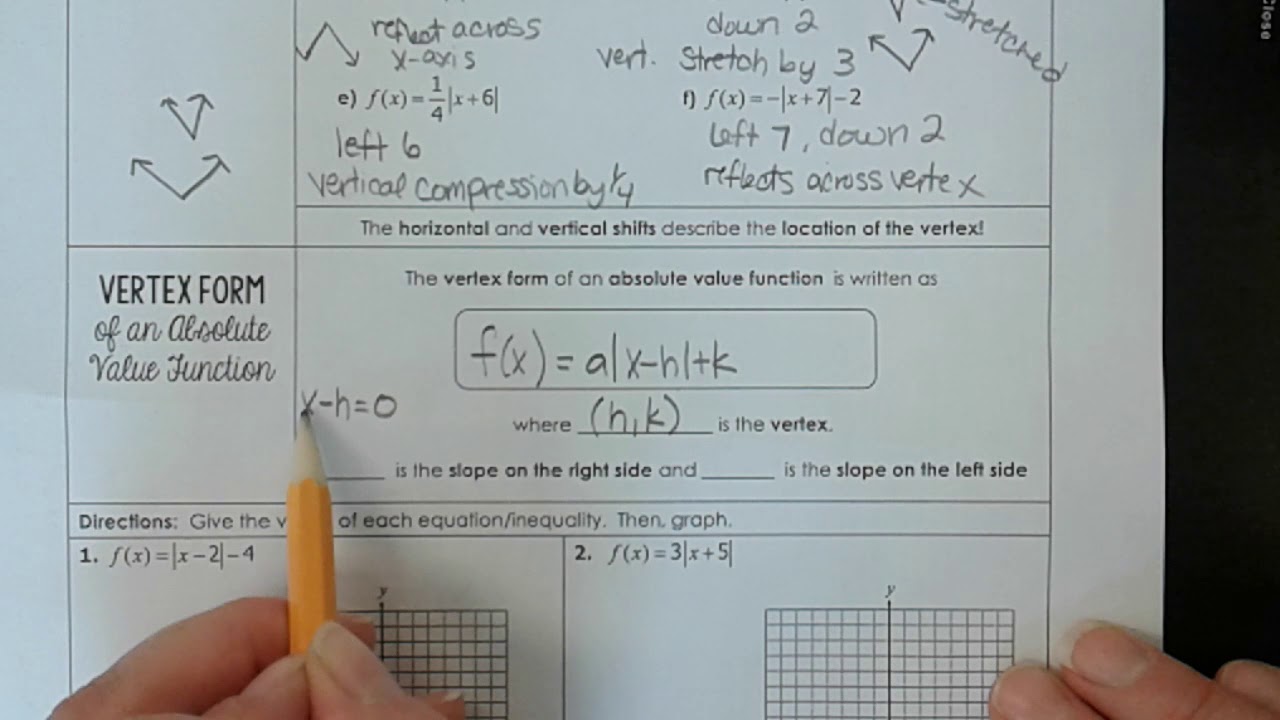 Close
reflect across
x-axis
down 2
vert. Stretch by 3
stretched
e) f(x)=1/4|x+6|
left 6
vertical compression by 1/4
f) f(x)=-|x+7|-2
left 7, down 2
reflects across vertex
The horizontal and vertical shifts describe the location of the vertex!
VERTEX FORM
of an Absolute
Value Function
The vertex form of an absolute value function is written as
f(x) = a|x-h|+k
x-h=0
where (h,k) is the vertex.
____ is the slope on the right side and ____ is the slope on the left side
Directions: Give the v of each equation/inequality. Then, graph.
1. f(x)=|x-2|-4
y
2. f(x)=3|x+5|
y